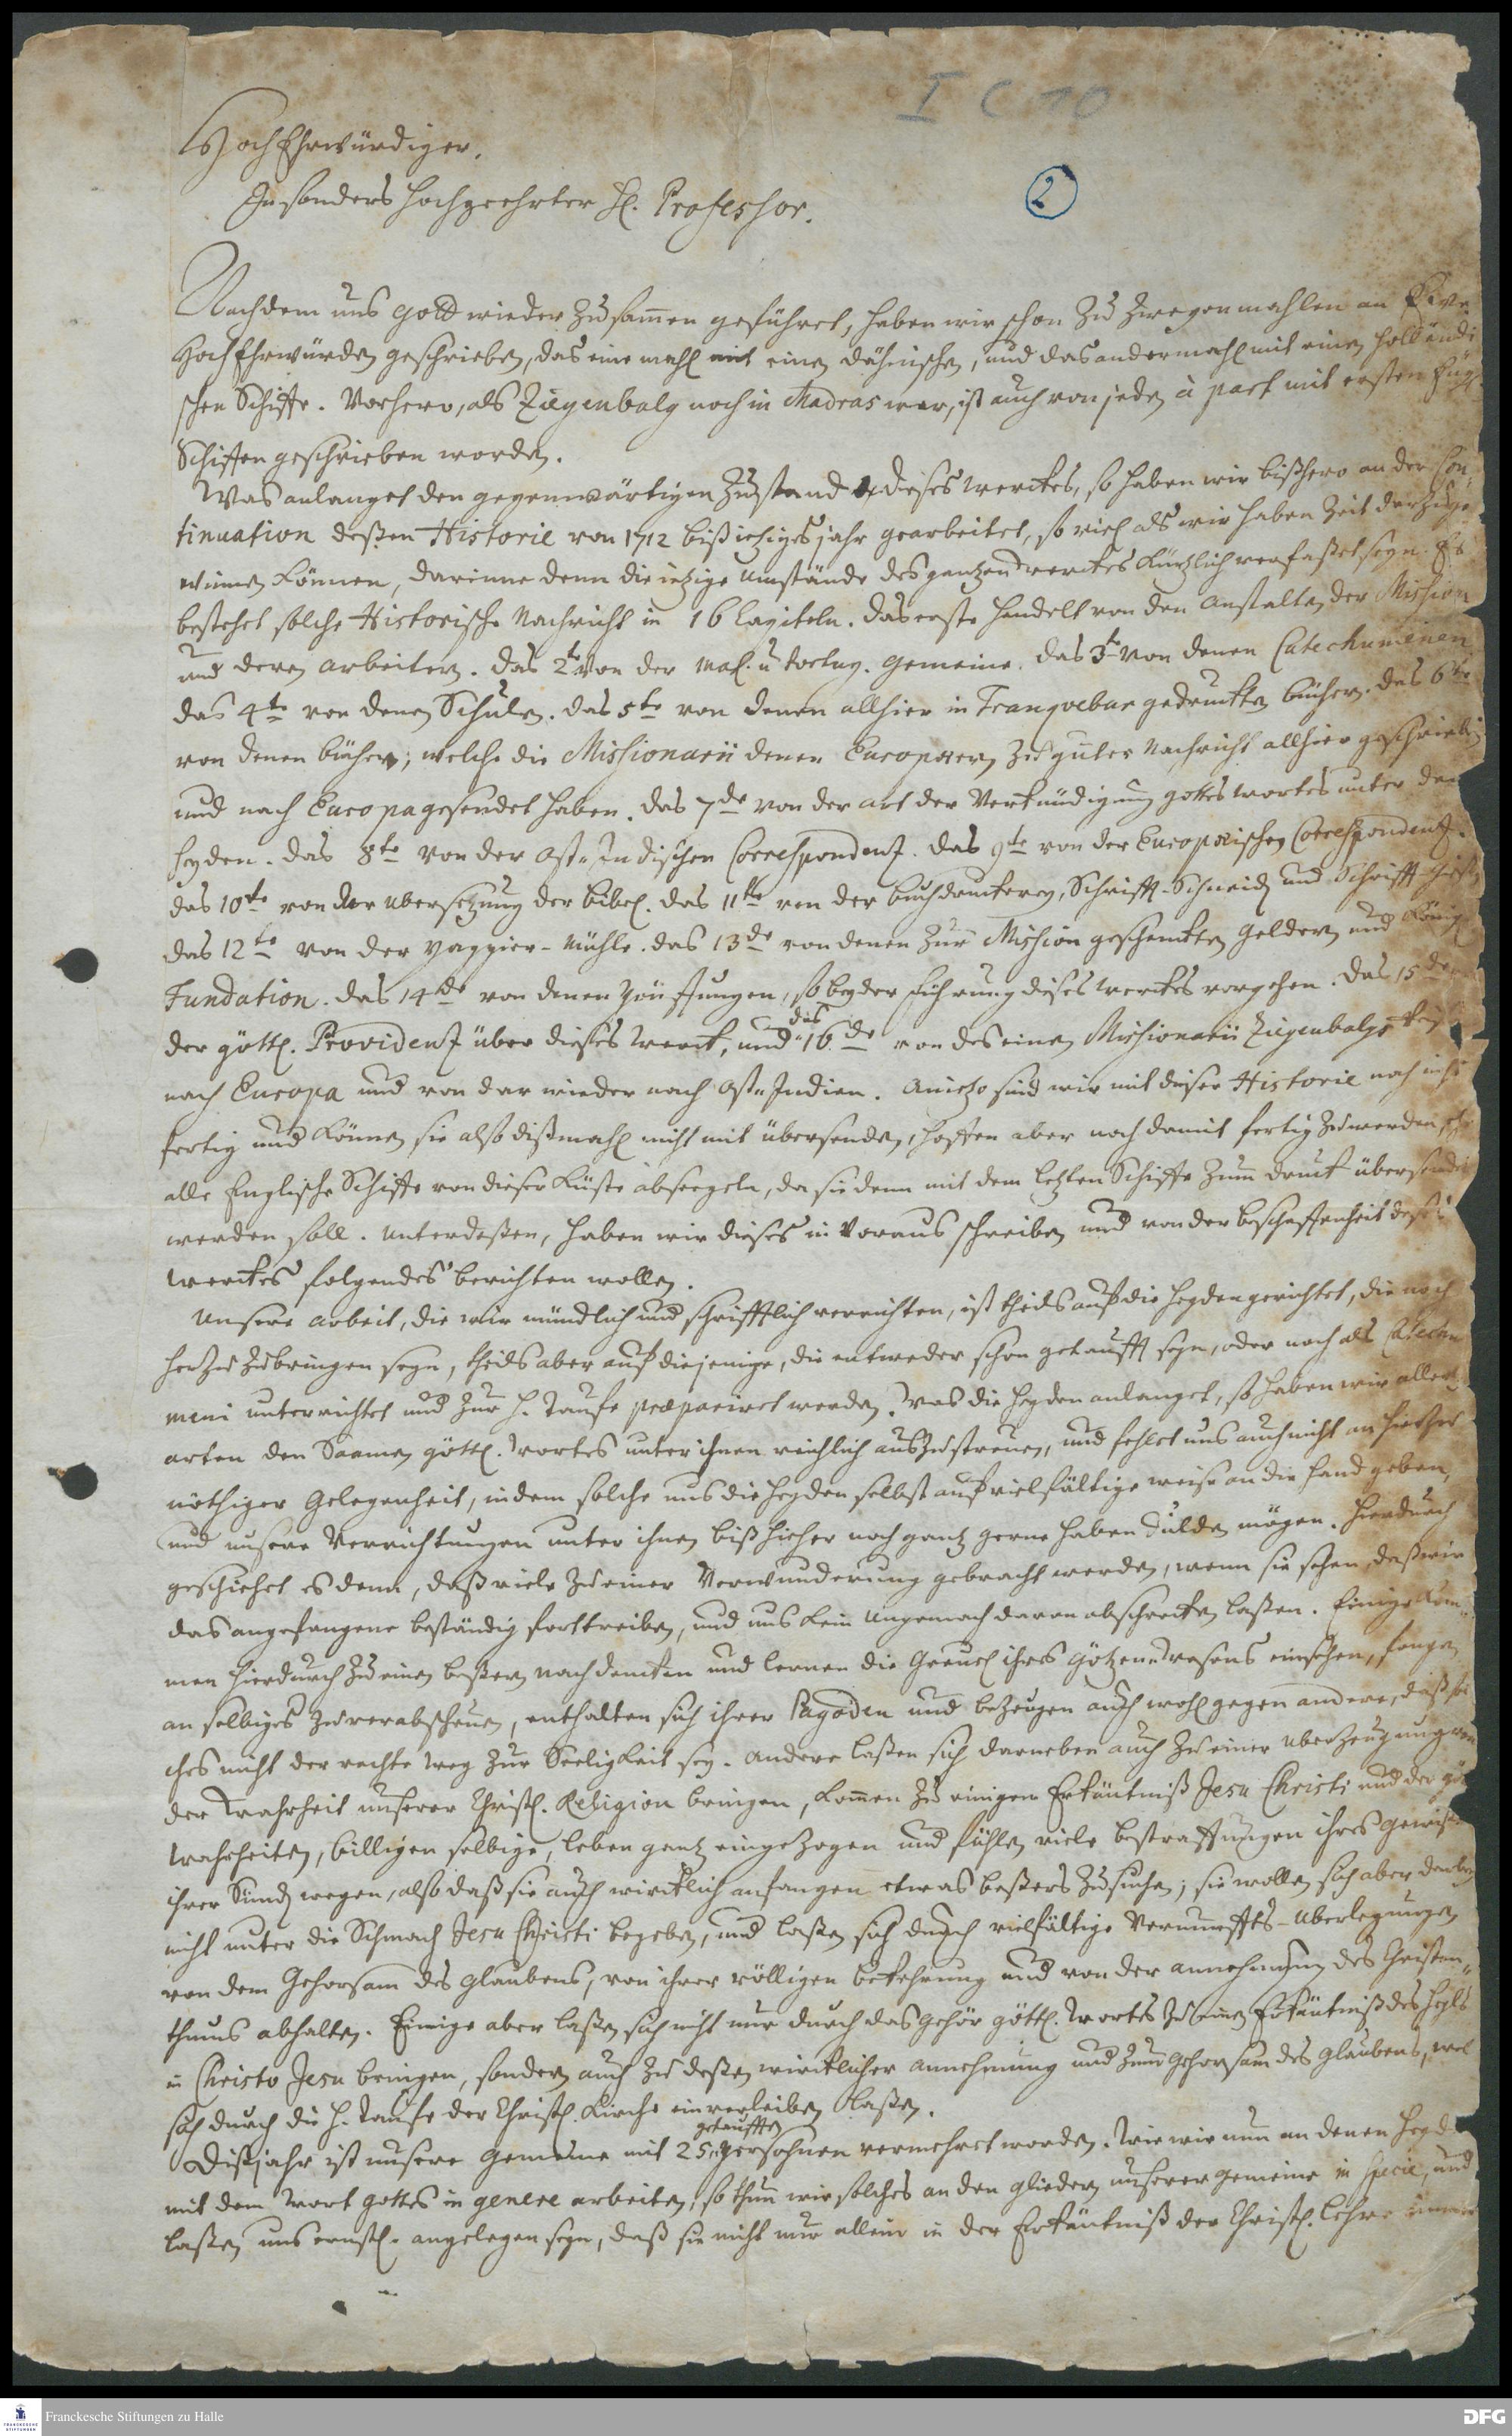 I C 10
HochEhrwürdiger.
Insonders hochgeehrter H. Professor.
2
Nachdem uns Gott wieder zusamen geführet, haben wir schon zu zweyen mahlen an Ewr.
HochEhrwürden geschrieben, das eine mahl mit einen dähnischen, und das andermahl mit einen holländi
schen Schiffe. Vorhero, als Ziegenbalg noch in Madras war, ist auch von jeden à part mit ersten Engl.
Schiffen geschrieben worden.
Was anlanget den gegenwärtigen Zustand dieses Werckes, so haben wir bißhero an der Con
tinuation deßen Historie von 1712 biß ietziges jahr gearbeitet, so viel als wir haben Zeit darzu ge
winnen können, darinne denn die ietzige Umstände des gantzen Werckes kürtzlich verfaßet seyn. Es
bestehet solche Historische Nachricht in 16 Capiteln. Das erste handelt von den Anstalten der Mission
und deren Arbeitern. Das 2te von der Mal. u Portug. Gemeine. das 3te von denen Catechumenen
das 4te von denen Schulen. das 5te von denen allhier in Tranqvebar gedruckten büchern. das 6te
von denen büchern, welche die Missionarii denen Europäern zu guter Nachricht allhier geschrieben
und nach Europa gesendet haben. das 7de von der Art der Verkündigung gottes wortes unter den
Heyden. das 8te von der Ost-Indischen Correspondenz. das 9te von der Europäischen Correspondenz.
das 10te von der Ubersetzung der bibel. das 11te von der buchdruckerey, Schrifft-Schneid. und Schrifft-Gieß.
das 12te von der Pappier-Mühle. das 13de von denen zur Mission geschenckten Geldern und Königl.
Fundation. das 14de von denen Prüffungen, so bey der führung dieses Werckes vorgehen. das 15de
der göttl. Providenz über dieses Werck, und das 16de von des einen Missionarii Ziegenbalgs
nach Europa und von dar wieder nach Ost-Indien. Anietzo sind wir mit dieser Historie noch nicht
fertig und können sie also dißmahl nicht mit übersenden, hoffen aber noch damit fertig zu werden, ehe
alle Englische Schiffe von dieser Küste abseegeln, da sie denn mit dem letzten Schiffe zum druck übersendet
werden soll. Unterdeßen, haben wir dieses in Voraus schreiben und von der beschaffenheit deß
Werckes folgendes berichten wollen.
Unsere Arbeit, die wir mündlich und schrifftlich verrichten, ist theils auf die Heyden gerichtet, die noch
herzu zubringen seyn, theils aber auf diejenige, die entweder schon getaufft seyn, oder noch als Catechu
meni unterrichtet und zur H. Taufe præpariret werden. Was die Heyden anlanget, so haben wir aller
orten den Saamen göttl. Wortes unter ihnen reichlich auszustreuen, und fehlet uns auch nicht an hierzu
nöthiger Gelegenheit, indem solche uns die Heyden selbst auf vielfältige weise an die hand geben,
und unsere Verrichtungen unter ihnen biß hieher noch gantz gerne haben dulden mögen. Hierdurch
geschiehet es denn, daß viele zu einer Verwunderung gebracht werden, wenn sie sehen, daß wir
das angefangene beständig forttreiben, und uns kein Ungemach davon abschrecken laßen. Einige kom
men hierdurch zu einen beßern nachdencken und lernen die Greuel ihres Götzen-wesens einsehen, fangen
an selbiges zu verabscheuen, enthalten sich ihrer Pagoden und bezeugen auch wohl gegen andere, daß sol
ches nicht der rechte Weg zur Seeligkeit sey. Andere laßen sich darneben auch zu einer Uberzeugung von
der Wahrheit unserer Christl. Religion bringen, kommen zu einigen Erkäntniß Jesu Christi und der
Wahrheiten, billigen selbige, leben gantz eingezogen und fühlen viele bestraffungen ihres gewißens
ihrer Sünd. wegen, also daß sie auch wircklich anfangen etwas beßers zu suchen; sie wollen sich aber
nicht unter die Schmach Jesu Christi begeben, und laßen sich durch vielfältige Vernunffts-Uberlegungen
von dem Gehorsam des glaubens, von ihrer völligen bekehrung und von der annehmung des Christen
thums abhalten. Einige aber laßen sich nicht nur durch das gehör göttl. Wortes zu einen Erkäntniß des Heyls
in Christo Jesu bringen, sondern auch zu deßen wircklicher annehmung und zum gehorsam des glaubens,
sich durch die H. Taufe der Christl. Kirche einverleiben laßen.
Diß jahr ist unsere Gemeine mit 25 getaufften Persohnen vermehret worden. Wie wir nun an denen Heyden
mit dem Wort gottes in genere arbeiten, so thun wir solches an den gliedern unserer gemeine in specie, und
laßen uns ernstl. angelegen seyn, daß sie nicht nur allein in der Erkäntniß der Christl. Lehre immer
Franckesche Stiftungen zu Halle
DFG